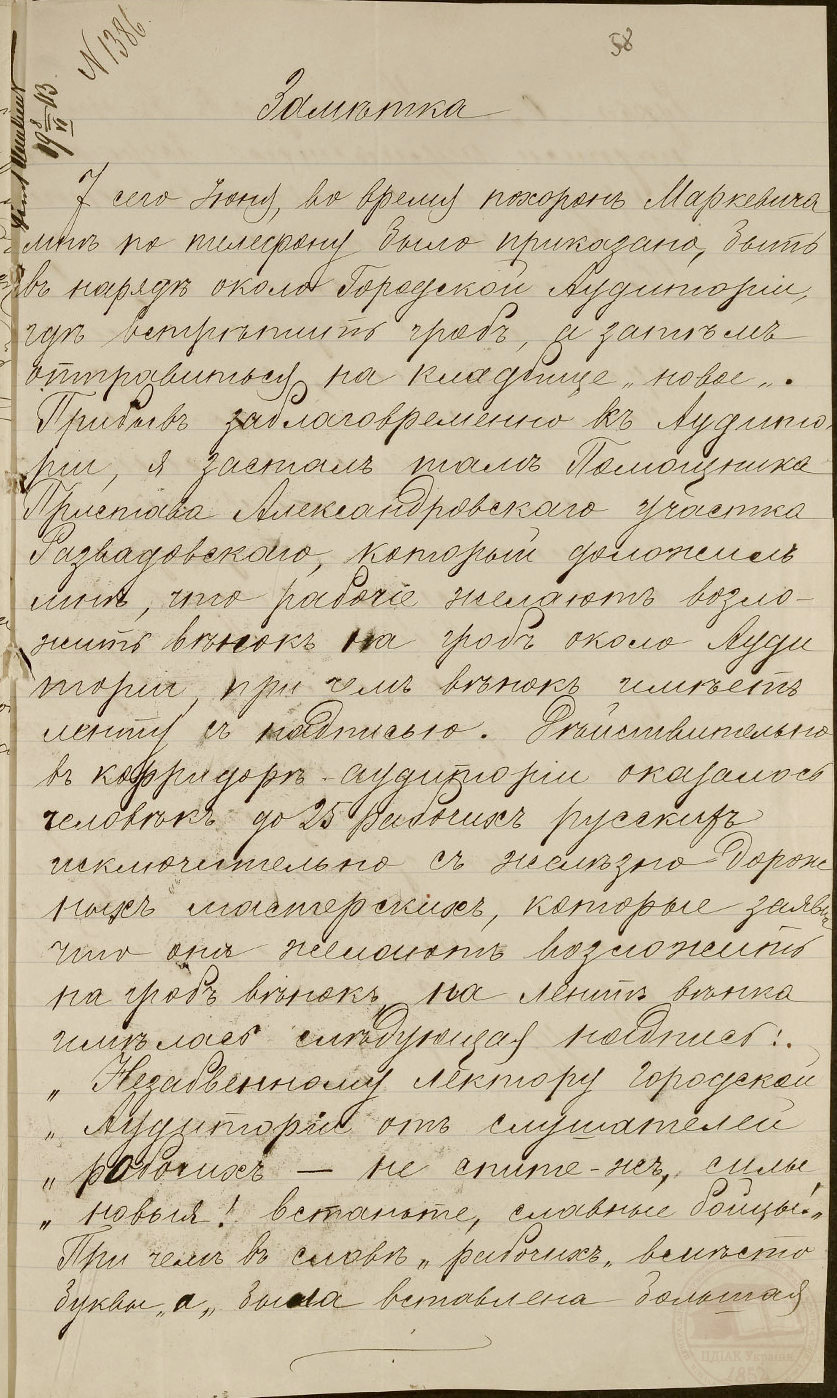 N 1386
58
19 8/VI 03
Замѣтка
7 сего Іюня, во время похоронъ Маркевича
мнѣ по телефону было приказано, быть
въ нарядѣ около Городской Аудиторіи,
гдѣ встрѣтить гробъ, а затѣмъ
отправиться на кладбище „новое„.
Прибывъ заблаговременно къ Аудито-
ріи, я засталъ тамъ Помощника
Пристава Александровскаго участка
Развадовскаго, который доложилъ
мнѣ, что рабочіе желаютъ возло-
жить вѣнокъ на гробъ около Ауди
торіи, при чемъ вѣнокъ имѣетъ
ленту съ надписью. Дѣйствительно
въ корридорѣ аудиторіи оказалось
человѣкъ до 25 рабочихъ русскихъ
исключительно съ желѣзно дорож
ныхъ мастерскихъ, которые заявили
что они желаютъ возложить
на гробъ вѣнокъ, на лентѣ вѣнка
имѣлась слѣдующая надпись:.
„ Незабвенному лектору городской
„ Аудиторіи отъ слушателей
„ рабочихъ — не спите-жъ, силы
„ новыя! встаньте, славные бойцы!„
При чемъ въ словѣ „рабочихъ„ вмѣсто
буквы „а„ была вставлена большая
ЦДІАК України